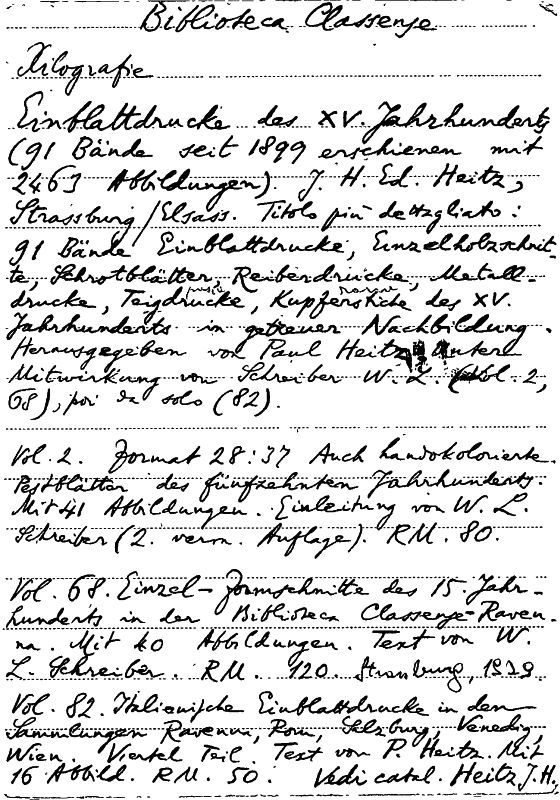 Biblioteca Classense
Xilografie
Einblattdrucke des XV. Jahrhunderts
(91 Bände seit 1899 erschienen mit
2463 Abbildungen). J. H. Ed. Heitz,
Strassburg/Elsass. Titolo più dettagliato:
91 Bände Einblattdrucke, Einzelholzschnit-
te, Schrotblätter, Reiberdrucke, Metall-
drucke, Teigdrucke, Kupferstiche des XV.
Jahrhunderts in getreuer Nachbildung.
Herausgegeben von Paul Heitz unter
Mitwirkung von Schreiber W. L. (Vol. 2,
68), poi da solo (82).
Vol. 2. Format 28:37 Auch handokolorierte.
Pestblätter des fünfzehnten Jahrhunderts.
Mit 41 Abbildungen. Einleitung von W. L.
Schreiber (2. verm. Auflage). RM. 80.
Vol. 68. Einzel-Formschnitte des 15. Jahr-
hunderts in der Biblioteca Classense-Raven-
na. Mit 40 Abbildungen. Text von W.
L. Schreiber. RM. 120. Strassburg, 1929
Vol. 82. Italienische Einblattdrucke in den
Sammlungen Ravenna, Rom, Salzburg, Venedig,
Wien. Viertel Teil. Text von P. Heitz. Mit
16 Abbild. RM. 50. Vedi catal. Heitz J. H.